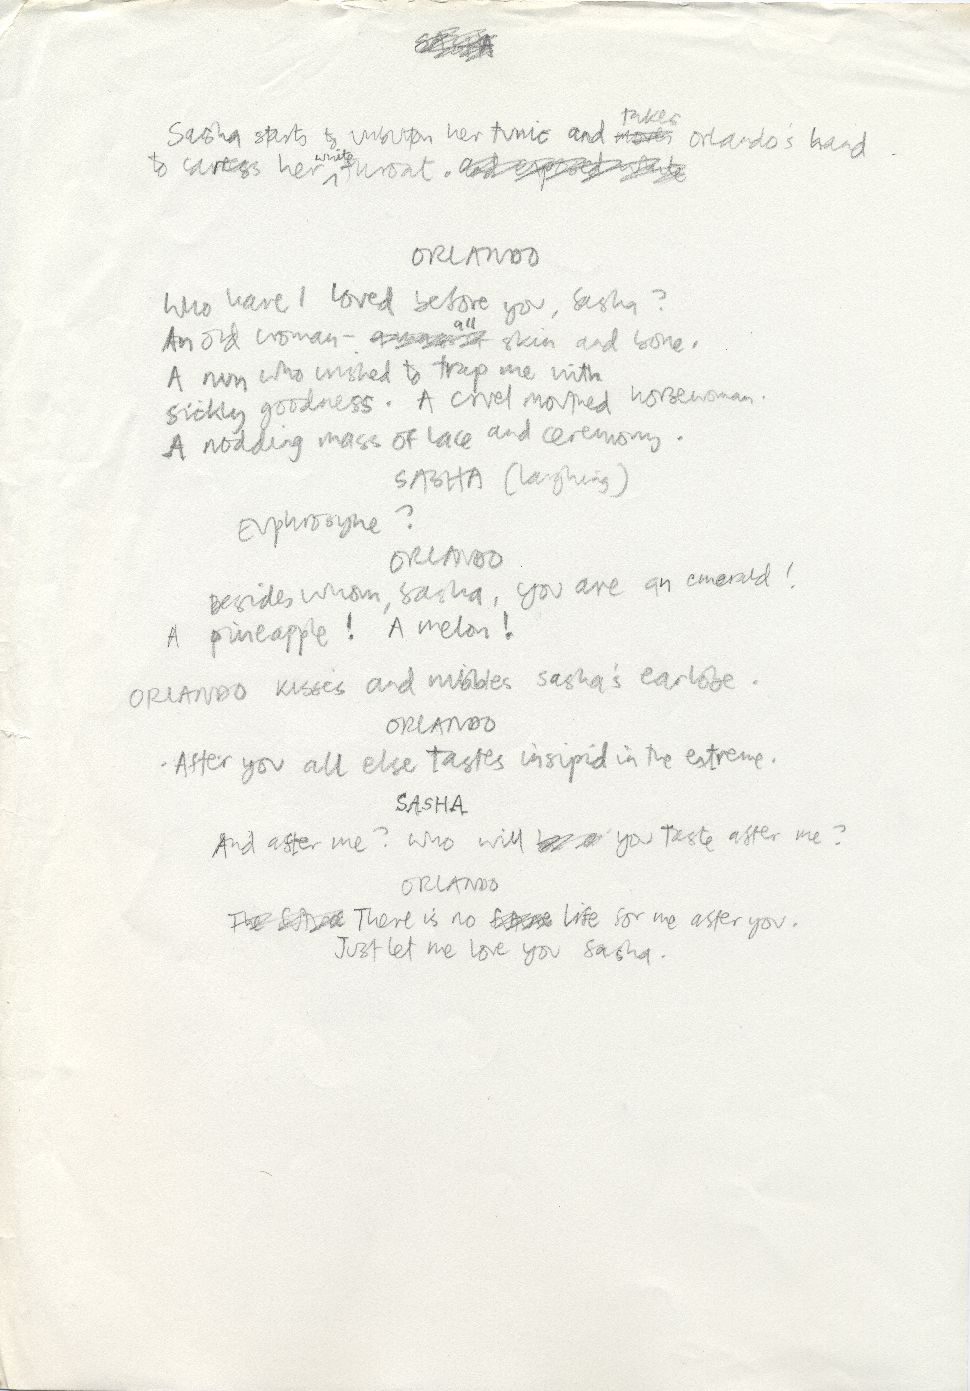 SASHA
Sasha starts to unbutton her tunic and takes Orlando's hand
to caress her white throat.
ORLANDO
Who have I loved before you, Sasha?
An old woman - all skin and bone.
A nun who wished to trap me with
sickly goodness. A cruel mouthed horsewoman.
A nodding mass of lace and ceremony.
SASHA (laughing)
Euphrosyne?
ORLANDO
Besides whom, Sasha, you are an emerald!
A pineapple! A melon!
ORLANDO kisses and nibbles Sasha's earlobe.
ORLANDO
After you all else tastes insipid in the extreme.
SASHA
And after me? Who will you taste after me?
ORLANDO
There is no life for me after you.
Just let me love you Sasha.